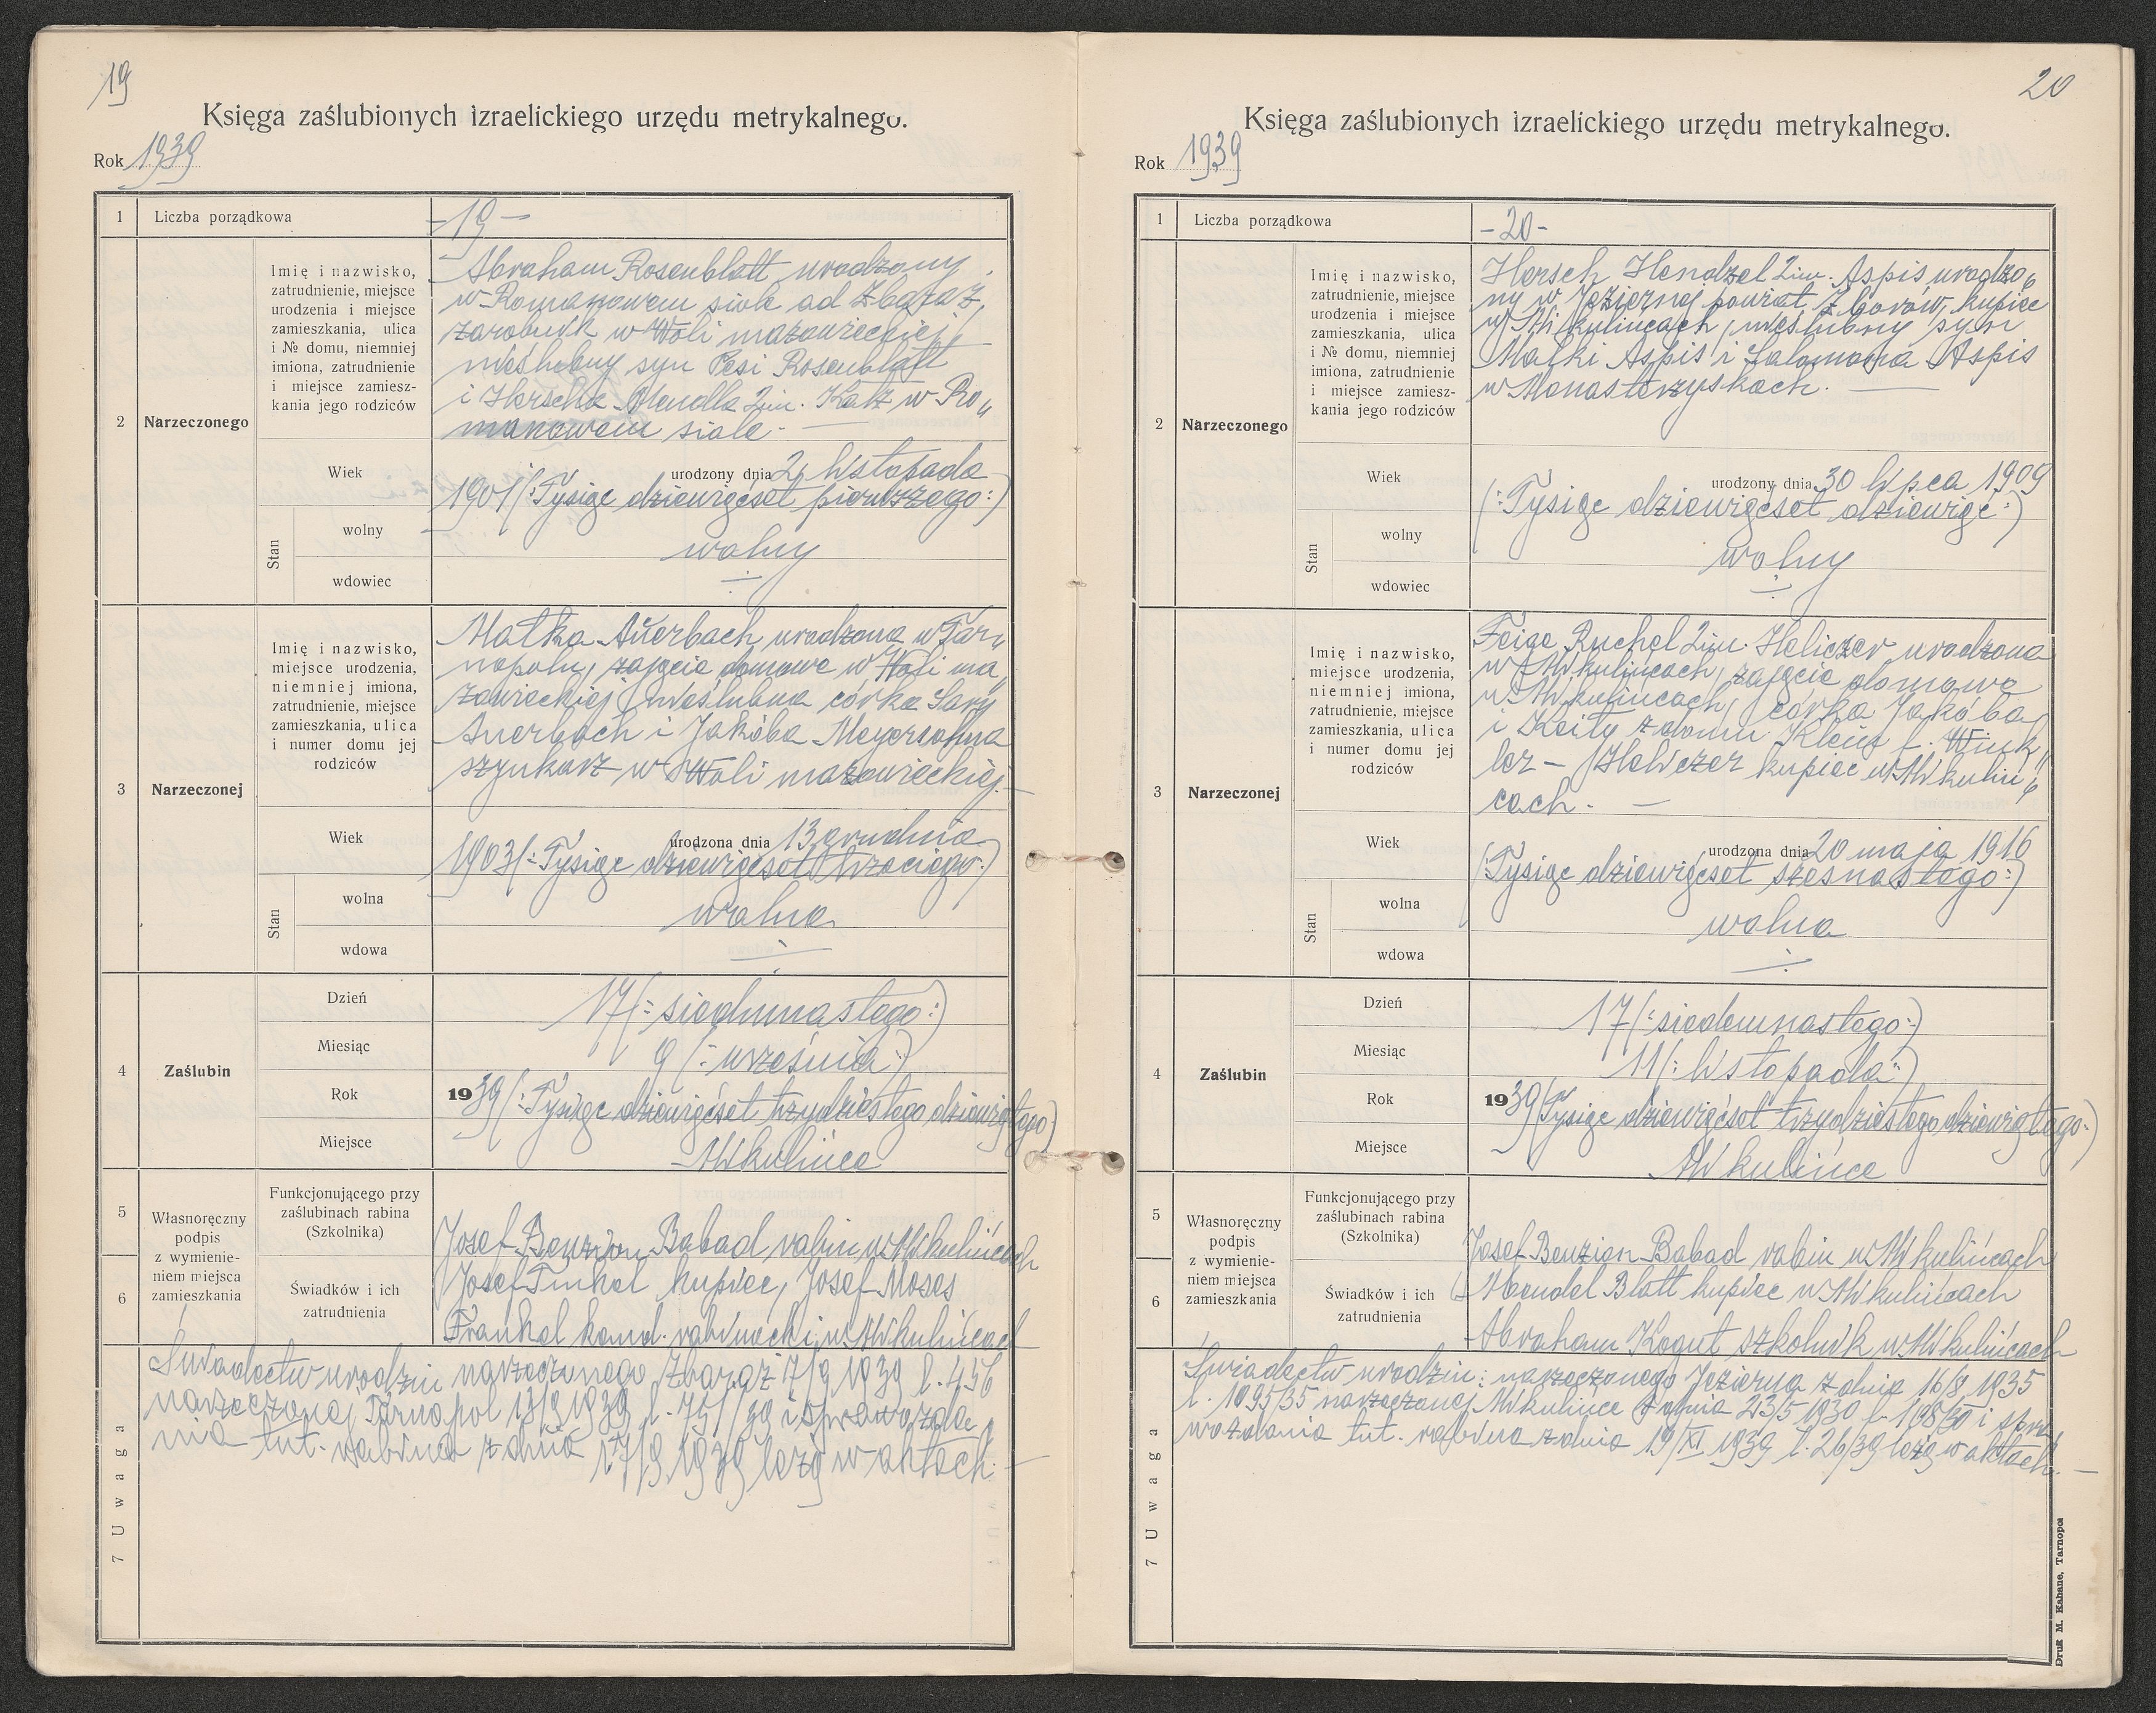 19
Księga zaślubionych izraelickiego urzędu metrykalnego.
Rok 1939
1 Liczba porządkowa -19-
2 Narzeczonego
Imię i nazwisko,
zatrudnienie, miejsce
urodzenia i miejsce
zamieszkania, ulica
i № domu, niemniej
imiona, zatrudnienie
i miejsce zamiesz-
kania jego rodziców
Abraham Rosenblatt urodzony
w Romanowem siole ad Zbaraż,
zarobnik w Woli mazowieckiej,
nieślubny syn Pesi Rosenblatt
i Herscha Mendla 2im. Katz w Ro„
manowem siole. —
Wiek
urodzony dnia 2 listopada
1901 (: Tysiąc dziewięćset pierwszego :)
Stan
wolny
wolny
wdowiec
3 Narzeczonej
Imię i nazwisko,
miejsce urodzenia,
niemniej imiona,
zatrudnienie, miejsce
zamieszkania, ulica
i numer domu jej
rodziców
Malka Auerbach urodzona w Tar„
nopolu, zajęcie domowe w Woli ma„
zowieckiej, nieślubna córka Sary
Auerbach i Jakóba Meyersohna
szynkarz w Woli mazowieckiej. —
Wiek
urodzona dnia 13 grudnia
1903 (: Tysiąc dziewięćset trzeciego :)
Stan
wolna
wolna
wdowa
4 Zaślubin
Dzień 17 (: siedmnastego :)
Miesiąc 9 (: września :)
Rok 1939 (: Tysiąc dziewięćset trzydziestego dziewiątego)
Miejsce Mikulińce
5
6
Własnoręczny
podpis
z wymienie-
niem miejsca
zamieszkania
Funkcjonującego przy
zaślubinach rabina
(Szkolnika)
Josef Benzion Babad rabin w Mikulińcach
Świadków i ich
zatrudnienia
Josef Finkel kupiec, Josef Moses
Frankel kand. rabinacki w Mikulińcach
7 Uwaga
Świadectw urodzin narzeczonego Zbaraż 17/9 1939 l. 456
narzeczonej Tarnopol 13/9 1939 l. 751/39 i sprawozda„
nia tut. rabina z dnia 17/9 1939 leżą w aktach. —
20
Księga zaślubionych izraelickiego urzędu metrykalnego.
Rok 1939
1 Liczba porządkowa -20-
2 Narzeczonego
Imię i nazwisko,
zatrudnienie, miejsce
urodzenia i miejsce
zamieszkania, ulica
i № domu, niemniej
imiona, zatrudnienie
i miejsce zamiesz-
kania jego rodziców
Hersch Hendzel 2im. Aspis urodzo„
ny w Jeziernej powiat Zborów, kupiec
w Mikulińcach, nieślubny syn
Malki Aspis i Salomona Aspis
w Monasterzyskach. —
Wiek
urodzony dnia 30 lipca 1909
(: Tysiąc dziewięćset dziewięć :)
Stan
wolny
wolny
wdowiec
3 Narzeczonej
Imię i nazwisko,
miejsce urodzenia,
niemniej imiona,
zatrudnienie, miejsce
zamieszkania, ulica
i numer domu jej
rodziców
Feige Ruchel 2im. Heliczer urodzona
w Mikulińcach, zajęcie domowe
w Mikulińcach, córka Jakóba
i Keity z domu Klein f. Wink„
ler - Heliczer kupiec w Mikuliń„
cach. —
Wiek
urodzona dnia 20 maja 1916
(: Tysiąc dziewięćset szesnastego :)
Stan
wolna
wolna
wdowa
4 Zaślubin
Dzień 17 (: siedemnastego :)
Miesiąc 11 (: listopada :)
Rok 1939 (Tysiąc dziewięćset trzydziestego dziewiątego :)
Miejsce Mikulińce
5
6
Własnoręczny
podpis
z wymienie-
niem miejsca
zamieszkania
Funkcjonującego przy
zaślubinach rabina
(Szkolnika)
Josef Benzion Babad rabin w Mikulińcach
Świadków i ich
zatrudnienia
Mendel Blatt kupiec w Mikulińcach
Abraham Kogut szkolnik w Mikulińcach
7 Uwaga
Świadectw urodzin: narzeczonego Jezierna z dnia 16/8 1935
l. 1095/35 narzeczonej Mikulińce z dnia 23/5 1930 l. 108/30 i spra„
wozdania tut. rabina z dnia 19/XI 1939 l. 26/39 leżą w aktach. —
Druk M. Kahane, Tarnopol